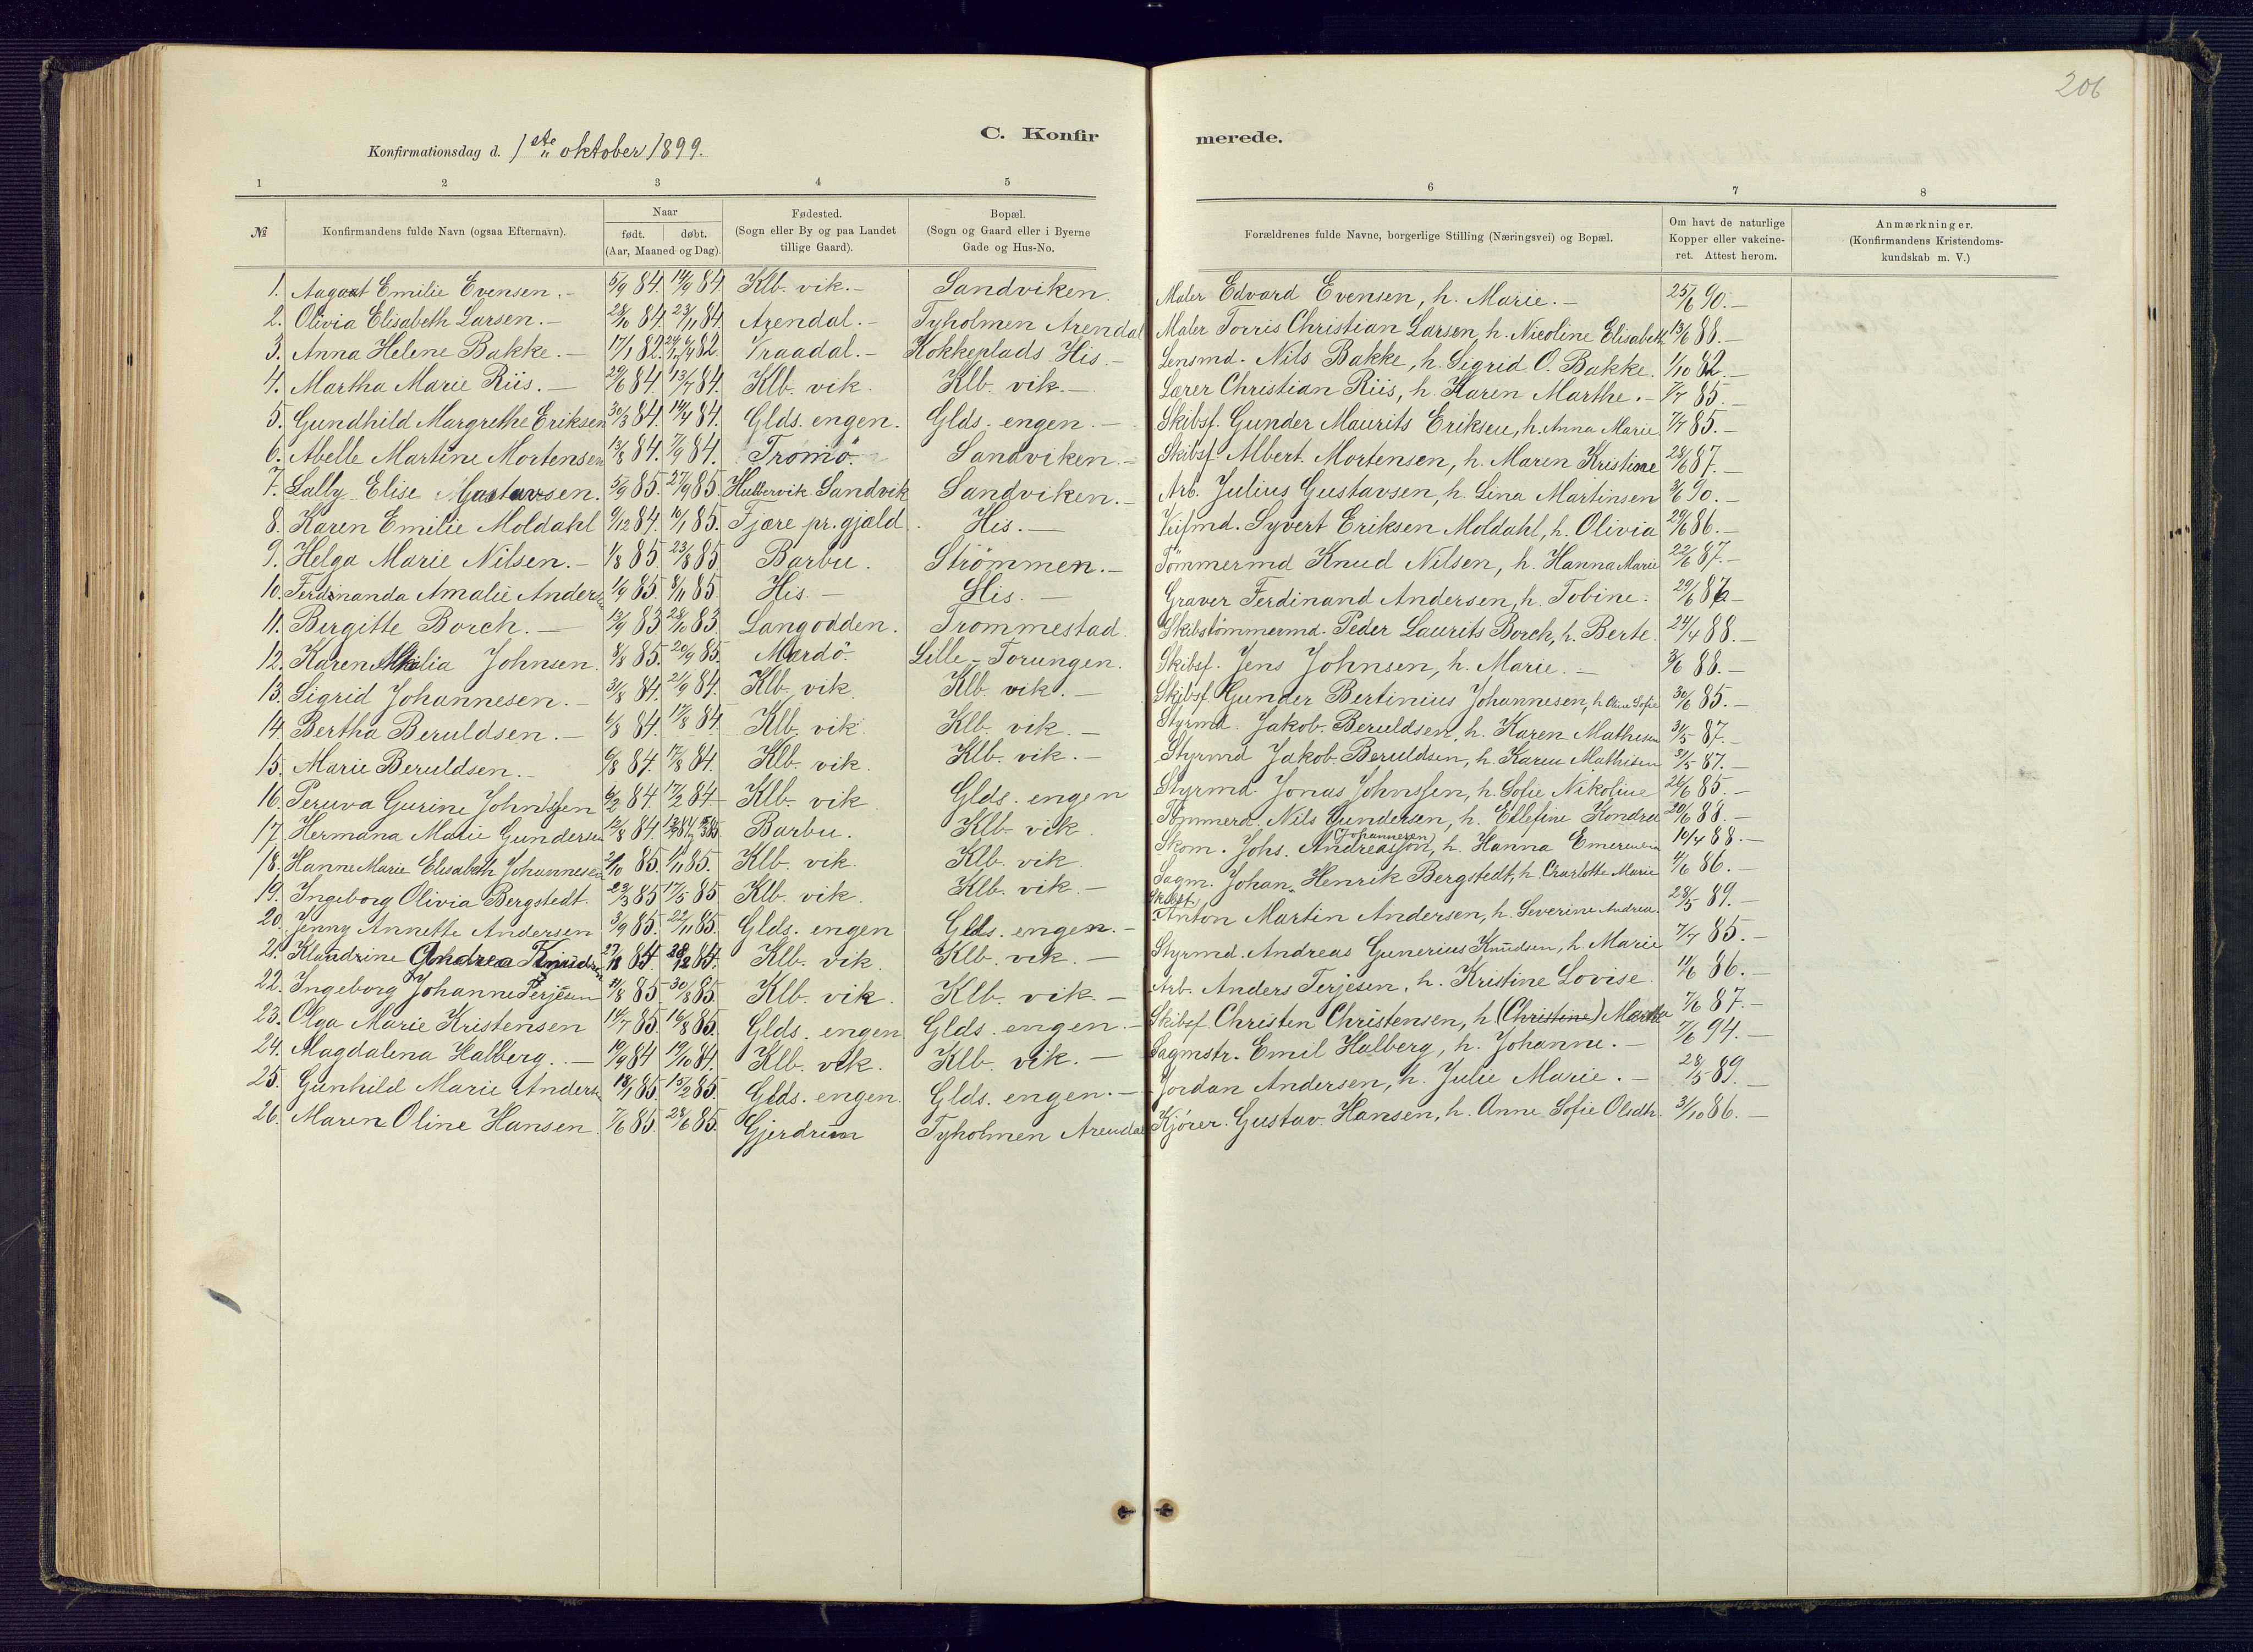 206
C. Konfir merede.
Konfirmationsdag d. 1ste oktober 1899.
1 2 3 4 5 6 7 8
№ Konfirmandens fulde Navn (ogsaa Efternavn). Naar født. døbt. (Aar, Maaned og Dag). Fødested. (Sogn eller By og paa Landet tillige Gaard). Bopæl. (Sogn og Gaard eller i Byerne Gade og Hus-No. Forældrenes fulde Navne, borgerlige Stilling (Næringsvei) og Bopæl. Om havt de naturlige Kopper eller vakcineret. Attest herom. Anmærkninger. (Konfirmandens Kristendomskundskab m. V.)
1. Emilie Evensen.- 5/9 84. 14/9 84 Klb. vik.- Sandviken. Maler Edvard Evensen, h. Marie.- 25/6 90.-
2. Olivia Elisabeth Larsen.- 28/10 84. 23/11 84. Arendal.- Tyholmen Arendal Maler Torris Christian Larsen, h. Nicoline Elisabeth 13/6 88.-
3. Anna Helene Bakke.- 17/1 82. 82. Vraadal.- Kokkeplads His.- Lensmd. Nils Bakke, h. Sigrid O. Bakke. 1/10 82.-
4. Martha Marie Riis.- 29/6 84. 13/7 84. Klb. vik. Klb. vik.- Lærer Christian Riis, h. Karen Marthe.- 7/7 85.-
5. Gundhild Margrethe Eriksen 30/3 84. 14/4 84. Glds. engen. Glds. engen.- Skibsf. Gunder Maurits Eriksen, h. Anna Marie. 7/7 85.-
6. Abelle Martine Mortensen 13/8 84. 7/9 84. Tromö. Sandviken.- Skibsf. Albert Mortensen, h. Maren Kristine 28/6 87.-
7. Lally Elise Gustavsen. 5/9 85. 27/9 85. Hulbervik Sandvik Sandviken.- Arb. Julius Gustavsen, h. Lina Martinsen 3/6 90.-
8. Karen Emilie Moldahl 9/12 84. 10/1 85. Fjære pr.gjæld. His.- Veifmd. Syvert Eriksen Moldahl, h. Olivia 29/6 86.-
9. Helga Marie Nilsen.- 1/8 85. 23/8 85 Barbu. Strömmen.- Tömmermd Knud Nilsen, h. Hanna Marie 22/6 87.-
10. Ferdinanda Amalie Andersen 1/9 85. 8/11 85. His.- His.- Graver Ferdinand Andersen, h. Tobine. 29/6 86-
11. Birgitte Borch.- 13/9 83. 28/10 83. Langodden. Trommestad. Skibstömmermd. Peder Laurits Borch, h. Berte. 24/4 88.-
12. Karen Johnsen. 8/8 85. 20/9 85. Mærdö. Lille-Torungen. Skibsf. Jens Johnsen, h. Marie.- 3/6 88.-
13. Sigrid Johannesen.- 31/8 84. 21/9 84. Klb. vik. Klb. vik.- Skibsf. Gunder Bertinius Johannesen, h. Sofie 30/6 85.-
14. Bertha Beruldsen.- 6/8 84. 17/8 84 Klb. vik. Klb. vik.- Styrmd. Jakob Beruldsen, h. Karen Mathisen 31/5 87.-
15. Marie Beruldsen.- 6/8 84. 17/8 84. Klb. vik. Klb. vik.- Styrmd Jakob Beruldsen, h. Karen Mathisen 31/5 87.-
16. Peruva Gurine Johnssen 6/2 84. 17/2 84 Klb. vik Glds. engen Styrmd. Jonas Johnssen, h. Sofie Nikoline 26/6 85.-
17. Hermana Marie Gundersen 12/8 84. Barbu. Klb. vik Tömmerd. Nils Gundersen, h. Ellefine Kondra 20/6 88.-
18. Hanne Marie Elisabeth Johannesen 2/10 85. 1/11 85. Klb. vik. Klb. vik. Skom. Johs. Andreasson, (Johannesen) h. Hanna Emerentia 10/4 88.-
19. Ingeborg Olivia Bergstedt. 23/3 85 17/5 85. Klb. vik. Klb. vik.- Sagm. Johan Henrik Bergstedt, h. Charlotte Marie 4/6 86.-
20. Jenny Annette Andersen 3/9 85. 22/11 85. Glds. engen Glds. engen.- Skibsf. Anton Martin Andersen, h. Severine Andrea. 28/5 89.-
21. Klaudrine Andrea Knudsen 84. 84. Klb. vik. Klb. vik.- Styrmd. Andreas Gunerius Knudsen, h. Marie 7/7 85.-
22. Ingeborg Johanne Terjesen 11/8 85. 30/8 85. Klb. vik. Klb. vik.- Arb. Anders Terjesen, h. Kristine Lovise. 11/6 86.-
23. Olga Marie Kristensen 14/7 85. 16/8 85. Glds. engen Glds. engen.- Skibsf. Christen Christensen, h. (Christine) Martha 7/6 87.-
24. Magdalena Halberg.- 19/9 84 19/10 84. Klb. vik. Klb. vik.- Sagmstr. Emil Halberg, h. Johanne.- 7/6 94.-
25. Gunhild Marie Andersen 18/1 85. 15/2 85. Glds. engen. Glds. engen.- Jordan Andersen, h. Julie Marie.- 28/5 89.-
26. Maren Oline Hansen. 7/6 85. 28/6 85. Gjerdrum Tyholmen Arendal Kjører. Gustav Hansen, h. Anne Sofie Olsdtr. 3/10 86.-